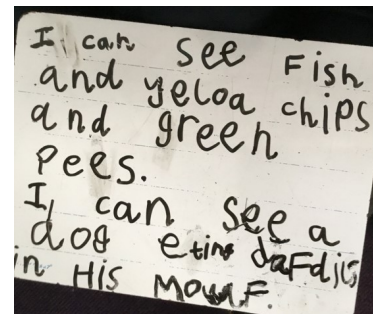 I can see Fish
and yeloa chips
and green
Pees.
I can see a
dog eting daFdjls
in His MowF.